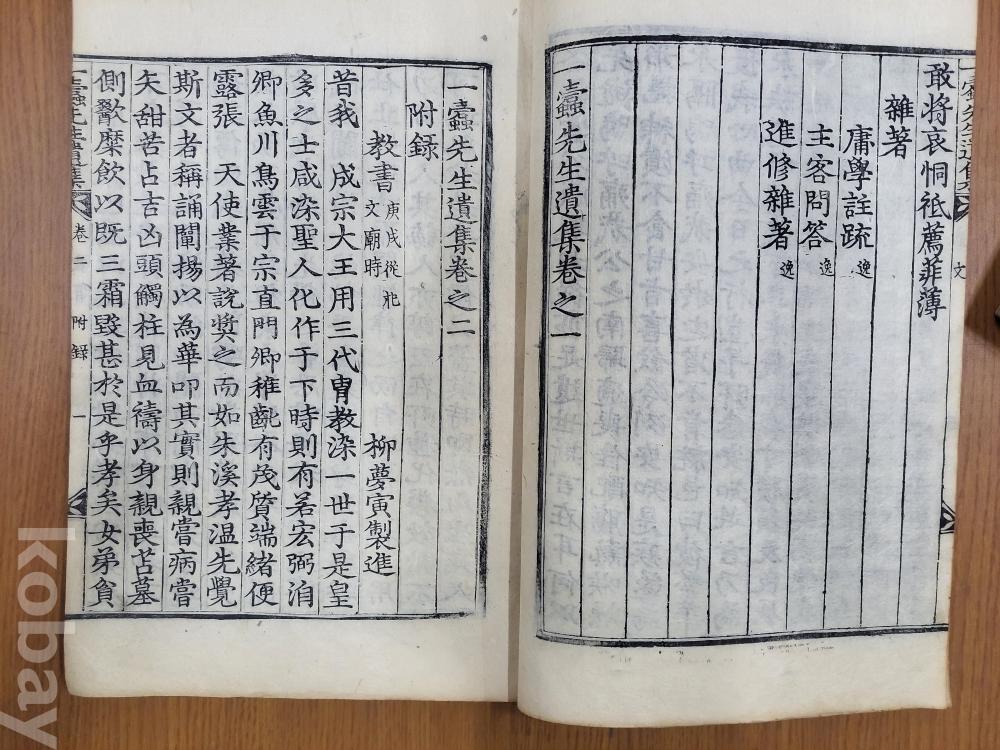 敢將哀恫祗薦菲薄
雜著
庸學註疏 逸
主客問答 逸
進修雜著 逸
一蠹先生遺集卷之一
一蠹先生遺集卷之二
附録
教書 庚戌從祀文廟時 柳夢寅製進
昔我 成宗大王用三代胄教染一世于是皇
多之士咸染聖人化作于下時則有若宏弼洎
卿魚川鳥雲于宗直門卿稚齔有茂質端緒便
露張 天使業著說奬之而如朱溪孝温先覺
斯文者稱誦闡揚以為華叩其實則親嘗病嘗
矢甜苦占吉凶頭觸柱見血禱以身親喪苫墓
側歠糜飲以既三霜毀甚於是乎孝矣女弟貧
一蠹先生遺集
卷二
附録
一
文
kobay